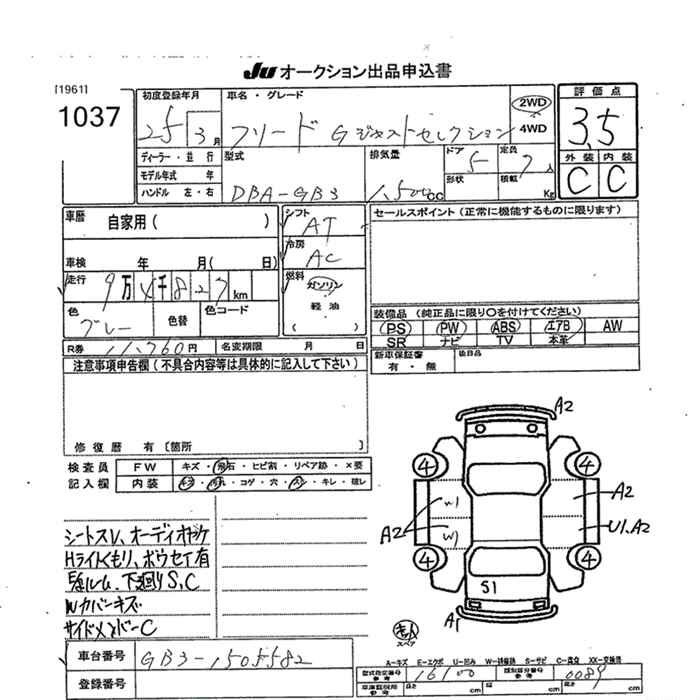 JU オークション出品申込書
[1961]
1037
初度登録年月
25 3 月
車名・グレード
フリード Gジャストセレクション
2WD
4WD
評価点
3.5
外装 内装
C C
ディーラー・並行
モデル年式 年
ハンドル 左・右
型式
DBA-GB3
排気量
1,500cc
ドア 5
形状
定員 7 人
積載 Kg
車歴 自家用( )
車検 年 月( 日)
走行 9万4千827km
色 グレー
色替
色コード
シフト AT
冷房 AC
燃料 ガソリン
軽油
( )
セールスポイント(正常に機能するものに限ります)
装備品(純正品に限り○を付けてください)
(PS) (PW) (ABS) (エアB) AW
SR ナビ TV 本革
R券 11,760円
名変期限 月 日
新車保証書
有・無
後日品
注意事項申告欄(不具合内容等は具体的に記入して下さい)
修復歴 有〔箇所 〕
検査員 FW キズ・飛石・ヒビ割・リペア跡・×要
記入欄 内装 キズ・汚れ・コゲ・穴・スレ・キレ・破レ
シートスレ、オーディオヤケ
Hライトくもり、
下廻りS,C
Wカバーキズ
サイドメンバーC
A2
4 4
A2
W1
W1
A2
U1.A2
4 4
S1
A1
スペア
A-キズ E-エクボ U-凹み W-補修跡 S-サビ C-腐食 XX-交換済
車台番号 GB3-1505582
登録番号
型式指定番号 参考 16100
類別区分番号 参考 0089
長さ cm 幅 cm 高さ cm